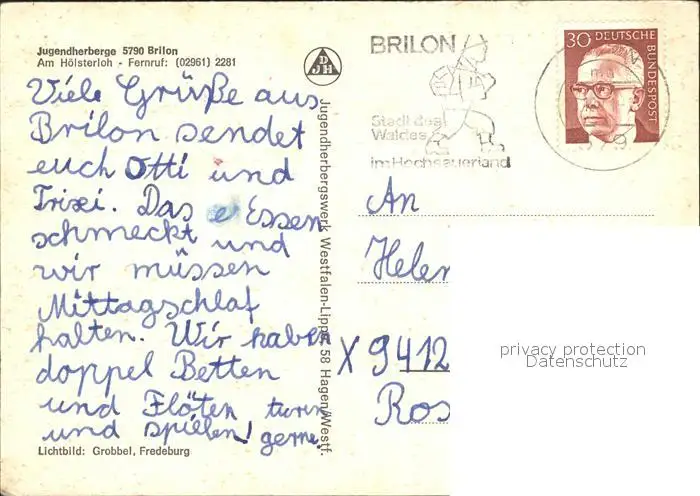 Jugendherberge 5790 Brilon
Am Hölsterloh - Fernruf: (02961) 2281
Viele Grüße aus
Brilon sendet
euch Otti und
Trixi. Das Essen
schmeckt und
wir müssen
Mittagschlaf
halten. Wir haben
doppel Betten
und Flöten turen
und spielen! gerne.
Lichtbild: Grobbel, Fredeburg
DJH
Jugendherbergswerk Westfalen-Lippe, 58 Hagen/Westf.
BRILON
Stadt des
Waldes
im Hochsauerland
30 DEUTSCHE
BUNDESPOST
An
Helen
X 9412
Ros
privacy protection
Datenschutz